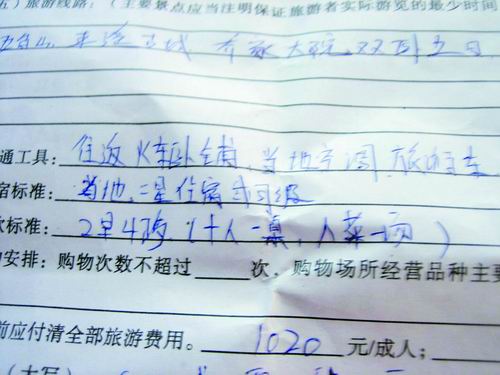 五)旅游线路:(主要景点应当注明保证旅游者实际游览的最少时间
五台山、平遥古城 乔家大院、双卧五日
通工具: 往返火车卧铺、当地空调旅游车
宿标准: 当地二星住宿或同级
标准: 2早4正(十人一桌,八菜一汤)
安排:购物次数不超过 次,购物场所经营品种主要
前应付清全部旅游费用。 1020 元/成人;
(大写)